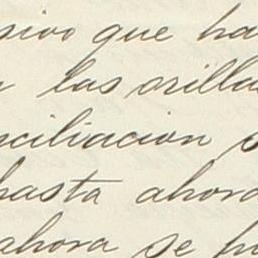 sivo que ha
las orilla
nciliacion s
hasta ahora
ahora se po